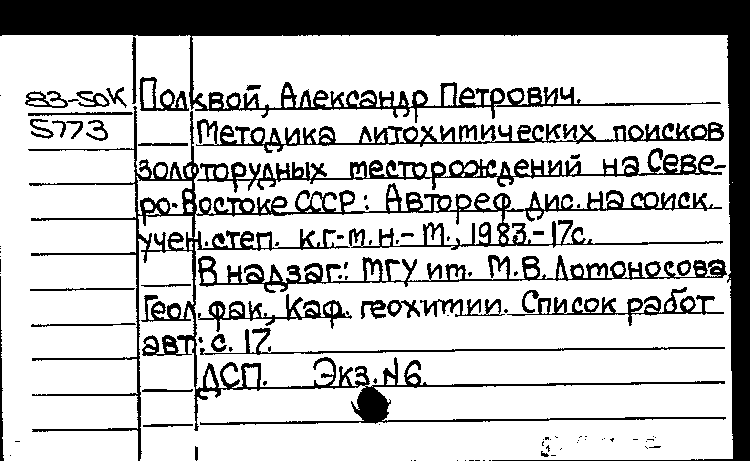 83-50К Полквой, Александр Петрович.
5773 Методика литохимических поисков
золоторудных месторождений на Севе-
ро-Востоке СССР: Автореф. дис. на соиск.
учен. степ. к.г.-м.н.- М., 1983.-17с.
В надзаг.: МГУ им. М.В. Ломоносова,
Геол. фак., Каф. геохимии. Список работ
авт.: с. 17.
ДСП. Экз. №6.